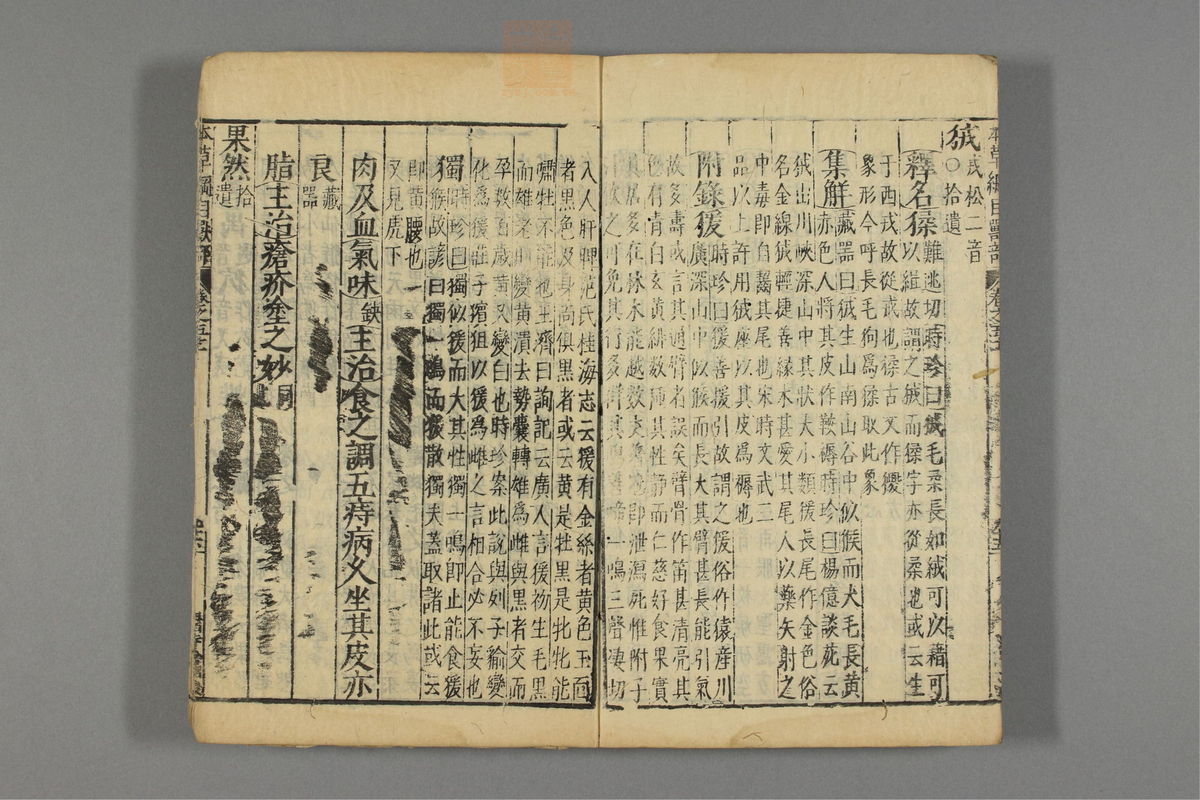 本草綱目獸部 卷之五十一
狨 戎松二音
○拾遺
釋名猱難逃切時珍曰狨毛柔長如絨可以藉可
以緝故謂之狨而猱字亦從柔也或云生
于西戎故從戎也猱古文作夒
象形今呼長毛狗爲猱取此象
集解藏器曰狨生山南山谷中似猴而大毛長黄
赤色人將其皮作鞍褥時珍曰楊億談苑云
狨出川峽深山中其狀大小類猨長尾作金色俗
名金線狨輕捷善緣木甚愛其尾人以藥矢射之
中毒即自齧其尾也宋時文武三
品以上許用狨座以其皮爲褥也
附錄猨時珍曰猨善援引故謂之猨俗作猿產川
廣深山中似猴而長大其臂甚長能引氣
故多壽或言其通臂者誤矣臂骨作笛甚清亮其
色有青白玄黄緋數種其性靜而仁慈好食果實
其居多在林木能越數丈著地即泄瀉死惟附子
汁飲之可免其行多羣其鳴善啼一鳴三聲凄切
入人肝脾范氏桂海志云猨有金絲者黄色玉面
者黑色及身面俱黑者或云黄是牡黑是牝牝能
嘯牡不能也王濟曰詢記云廣人言猨初生毛黑
而雄老則變黄潰去勢囊轉雄爲雌與黑者交而
孕數百歲黄又變白也時珍案此說與列子貐變
化爲猨莊子猵狙以猨爲雌之言相合必不妄也
獨時珍曰獨似猨而大其性獨一鳴即止能食猨
猴故諺曰獨一鳴而猨散獨夫蓋取諸此或云
即黄腰也
又見虎下
肉及血氣味缺主治食之調五痔病久坐其皮亦
良藏器
脂主治瘡疥塗之妙同上
果然拾遺
本草綱目獸部 卷之五十一